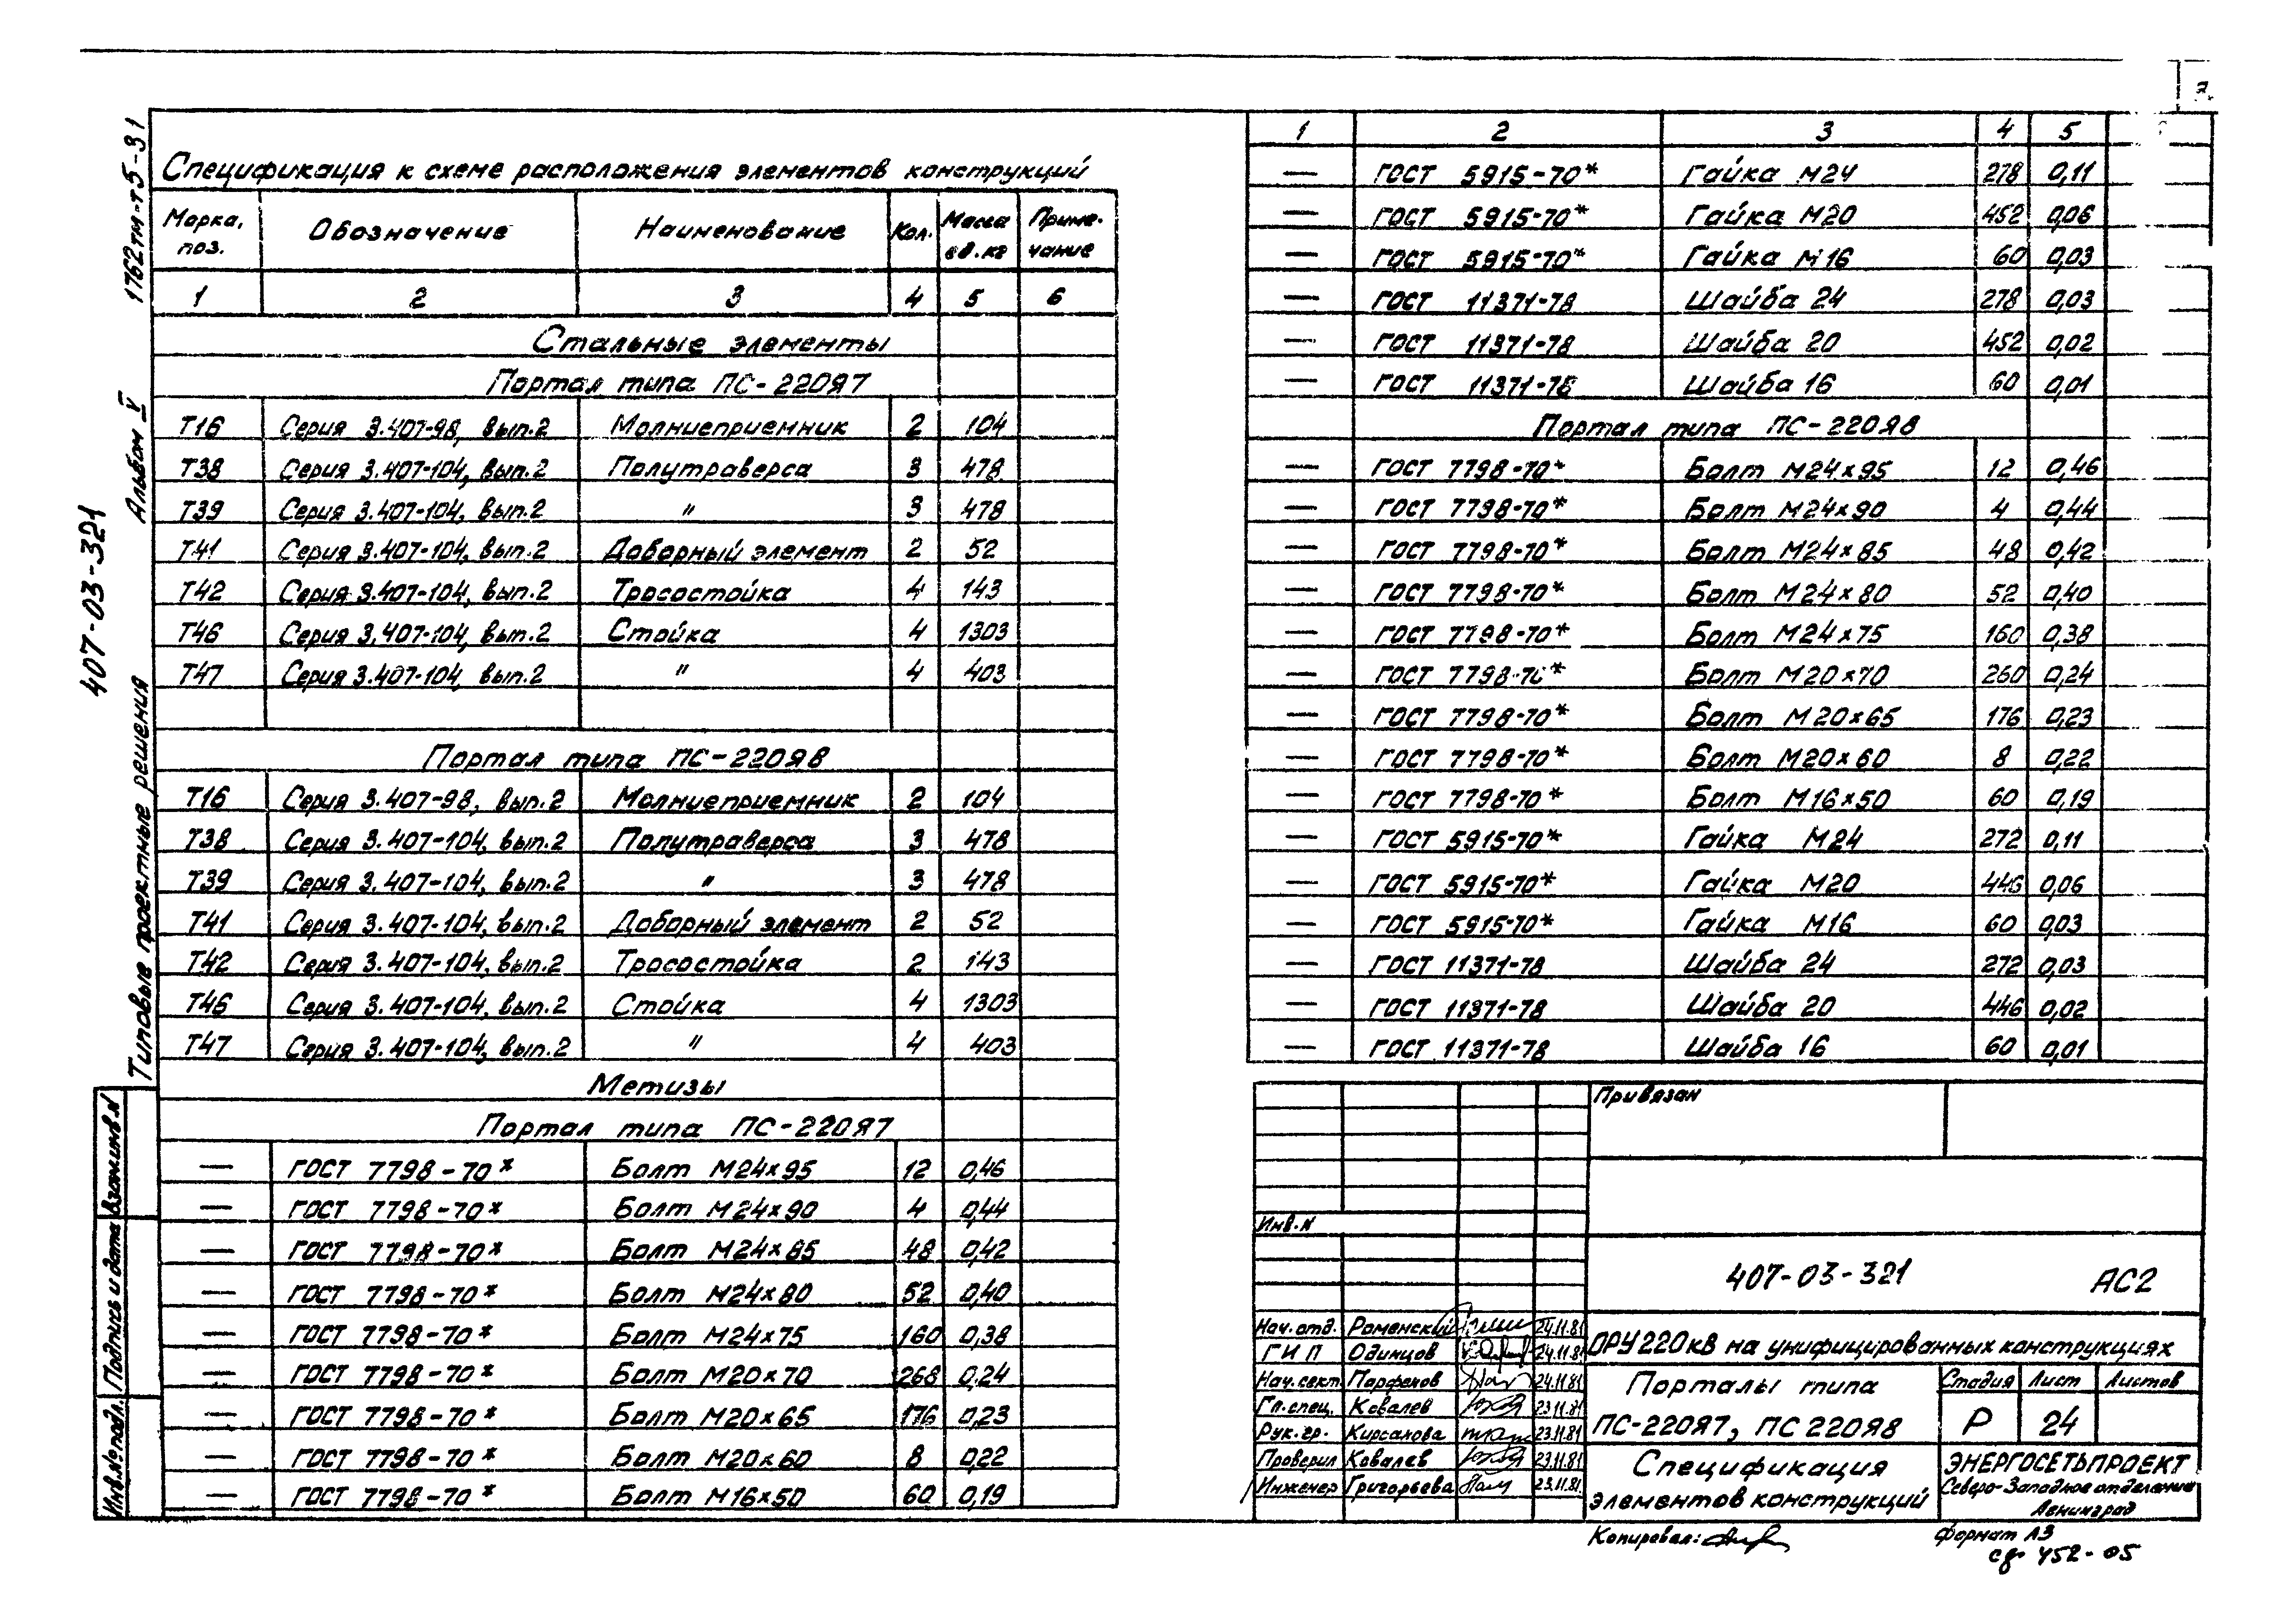 407-03-321
Типовые проектные решения Альбом V 1762тм-т5-31
Спецификация к схеме расположения элементов конструкций
Марка, поз. | Обозначение | Наименование | Кол. | Масса ед. кг | Приме-чание
1 | 2 | 3 | 4 | 5 | 6
Стальные элементы
Портал типа ПС-220Я7
Т16 | Серия 3.407-98, вып.2 | Молниеприемник | 2 | 104
Т38 | Серия 3.407-104, вып.2 | Полутраверса | 3 | 478
Т39 | Серия 3.407-104, вып.2 | " | 3 | 478
Т41 | Серия 3.407-104, вып.2 | Доборный элемент | 2 | 52
Т42 | Серия 3.407-104, вып.2 | Тросостойка | 4 | 143
Т46 | Серия 3.407-104, вып.2 | Стойка | 4 | 1303
Т47 | Серия 3.407-104, вып.2 | " | 4 | 403
Портал типа ПС-220Я8
Т16 | Серия 3.407-98, вып.2 | Молниеприемник | 2 | 104
Т38 | Серия 3.407-104, вып.2 | Полутраверса | 3 | 478
Т39 | Серия 3.407-104, вып.2 | " | 3 | 478
Т41 | Серия 3.407-104, вып.2 | Доборный элемент | 2 | 52
Т42 | Серия 3.407-104, вып.2 | Тросостойка | 2 | 143
Т46 | Серия 3.407-104, вып.2 | Стойка | 4 | 1303
Т47 | Серия 3.407-104, вып.2 | " | 4 | 403
Метизы
Портал типа ПС-220Я7
— | ГОСТ 7798-70* | Болт М24×95 | 12 | 0,46
— | ГОСТ 7798-70* | Болт М24×90 | 4 | 0,44
— | ГОСТ 7798-70* | Болт М24×85 | 48 | 0,42
— | ГОСТ 7798-70* | Болт М24×80 | 52 | 0,40
— | ГОСТ 7798-70* | Болт М24×75 | 160 | 0,38
— | ГОСТ 7798-70* | Болт М20×70 | 268 | 0,24
— | ГОСТ 7798-70* | Болт М20×65 | 176 | 0,23
— | ГОСТ 7798-70* | Болт М20×60 | 8 | 0,22
— | ГОСТ 7798-70* | Болт М16×50 | 60 | 0,19
1 | 2 | 3 | 4 | 5
— | ГОСТ 5915-70* | Гайка М24 | 278 | 0,11
— | ГОСТ 5915-70* | Гайка М20 | 452 | 0,06
— | ГОСТ 5915-70* | Гайка М16 | 60 | 0,03
— | ГОСТ 11371-78 | Шайба 24 | 278 | 0,03
— | ГОСТ 11371-78 | Шайба 20 | 452 | 0,02
— | ГОСТ 11371-78 | Шайба 16 | 60 | 0,01
Портал типа ПС-220Я8
— | ГОСТ 7798-70* | Болт М24×95 | 12 | 0,46
— | ГОСТ 7798-70* | Болт М24×90 | 4 | 0,44
— | ГОСТ 7798-70* | Болт М24×85 | 48 | 0,42
— | ГОСТ 7798-70* | Болт М24×80 | 52 | 0,40
— | ГОСТ 7798-70* | Болт М24×75 | 160 | 0,38
— | ГОСТ 7798-70* | Болт М20×70 | 260 | 0,24
— | ГОСТ 7798-70* | Болт М20×65 | 176 | 0,23
— | ГОСТ 7798-70* | Болт М20×60 | 8 | 0,22
— | ГОСТ 7798-70* | Болт М16×50 | 60 | 0,19
— | ГОСТ 5915-70* | Гайка М24 | 272 | 0,11
— | ГОСТ 5915-70* | Гайка М20 | 446 | 0,06
— | ГОСТ 5915-70* | Гайка М16 | 60 | 0,03
— | ГОСТ 11371-78 | Шайба 24 | 272 | 0,03
— | ГОСТ 11371-78 | Шайба 20 | 446 | 0,02
— | ГОСТ 11371-78 | Шайба 16 | 60 | 0,01
Привязан
Инв.N
407-03-321 АС2
Нач.отд. Роменский 24.11.81
ГИП Одинцов 24.11.81
Нач.сект. Парфенов 24.11.81
Гл.спец. Ковалев 23.11.81
Рук.гр. Кирсанова 23.11.81
Проверил Ковалев 23.11.81
Инженер Григорьева 23.11.81
ОРУ 220кВ на унифицированных конструкциях
Порталы типа
ПС-220Я7, ПС 220Я8
Стадия Лист Листов
Р 24
Спецификация
элементов конструкций
ЭНЕРГОСЕТЬПРОЕКТ
Северо-Западное отделение
Ленинград
Копировал:
Формат А3
сф 452-05
Инв.№подл. Подпись и дата Взам.инв.N